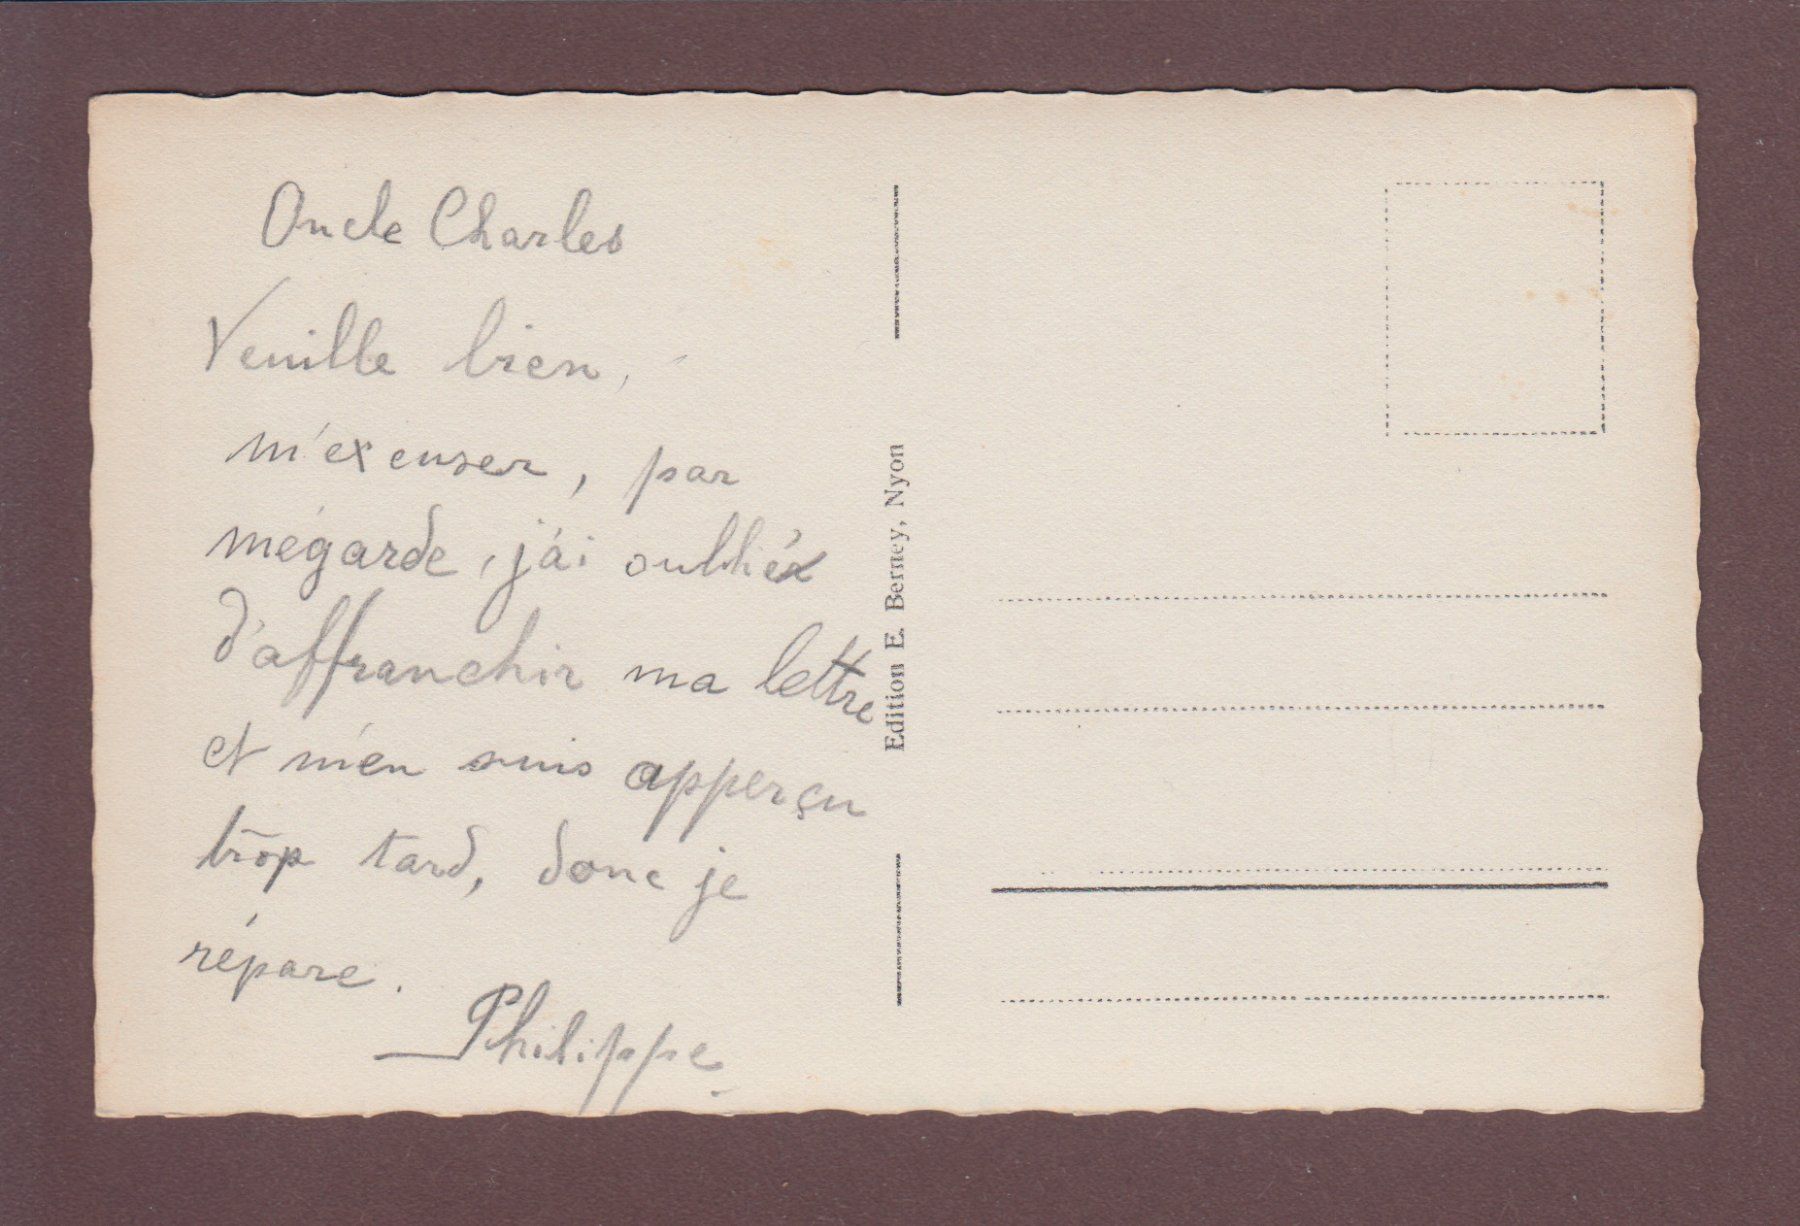 Oncle Charles
Veuille bien,
m'excuser, par
mégarde, j'ai oublié
d'affranchir ma lettre
et m'en suis apperçu
trop tard, donc je
répare.
Philippe
Edition E. Berney, Nyon